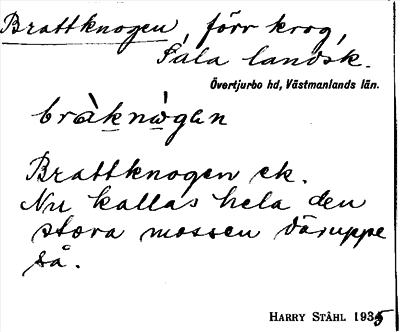 Brattknogen, förr krog,
Sala landsk.
Övertjurbo hd, Västmanlands län.
bràknògan
Brattknogen ek.
Nu kallas hela den
stora mossen däruppe
så.
HARRY STÅHL 1935